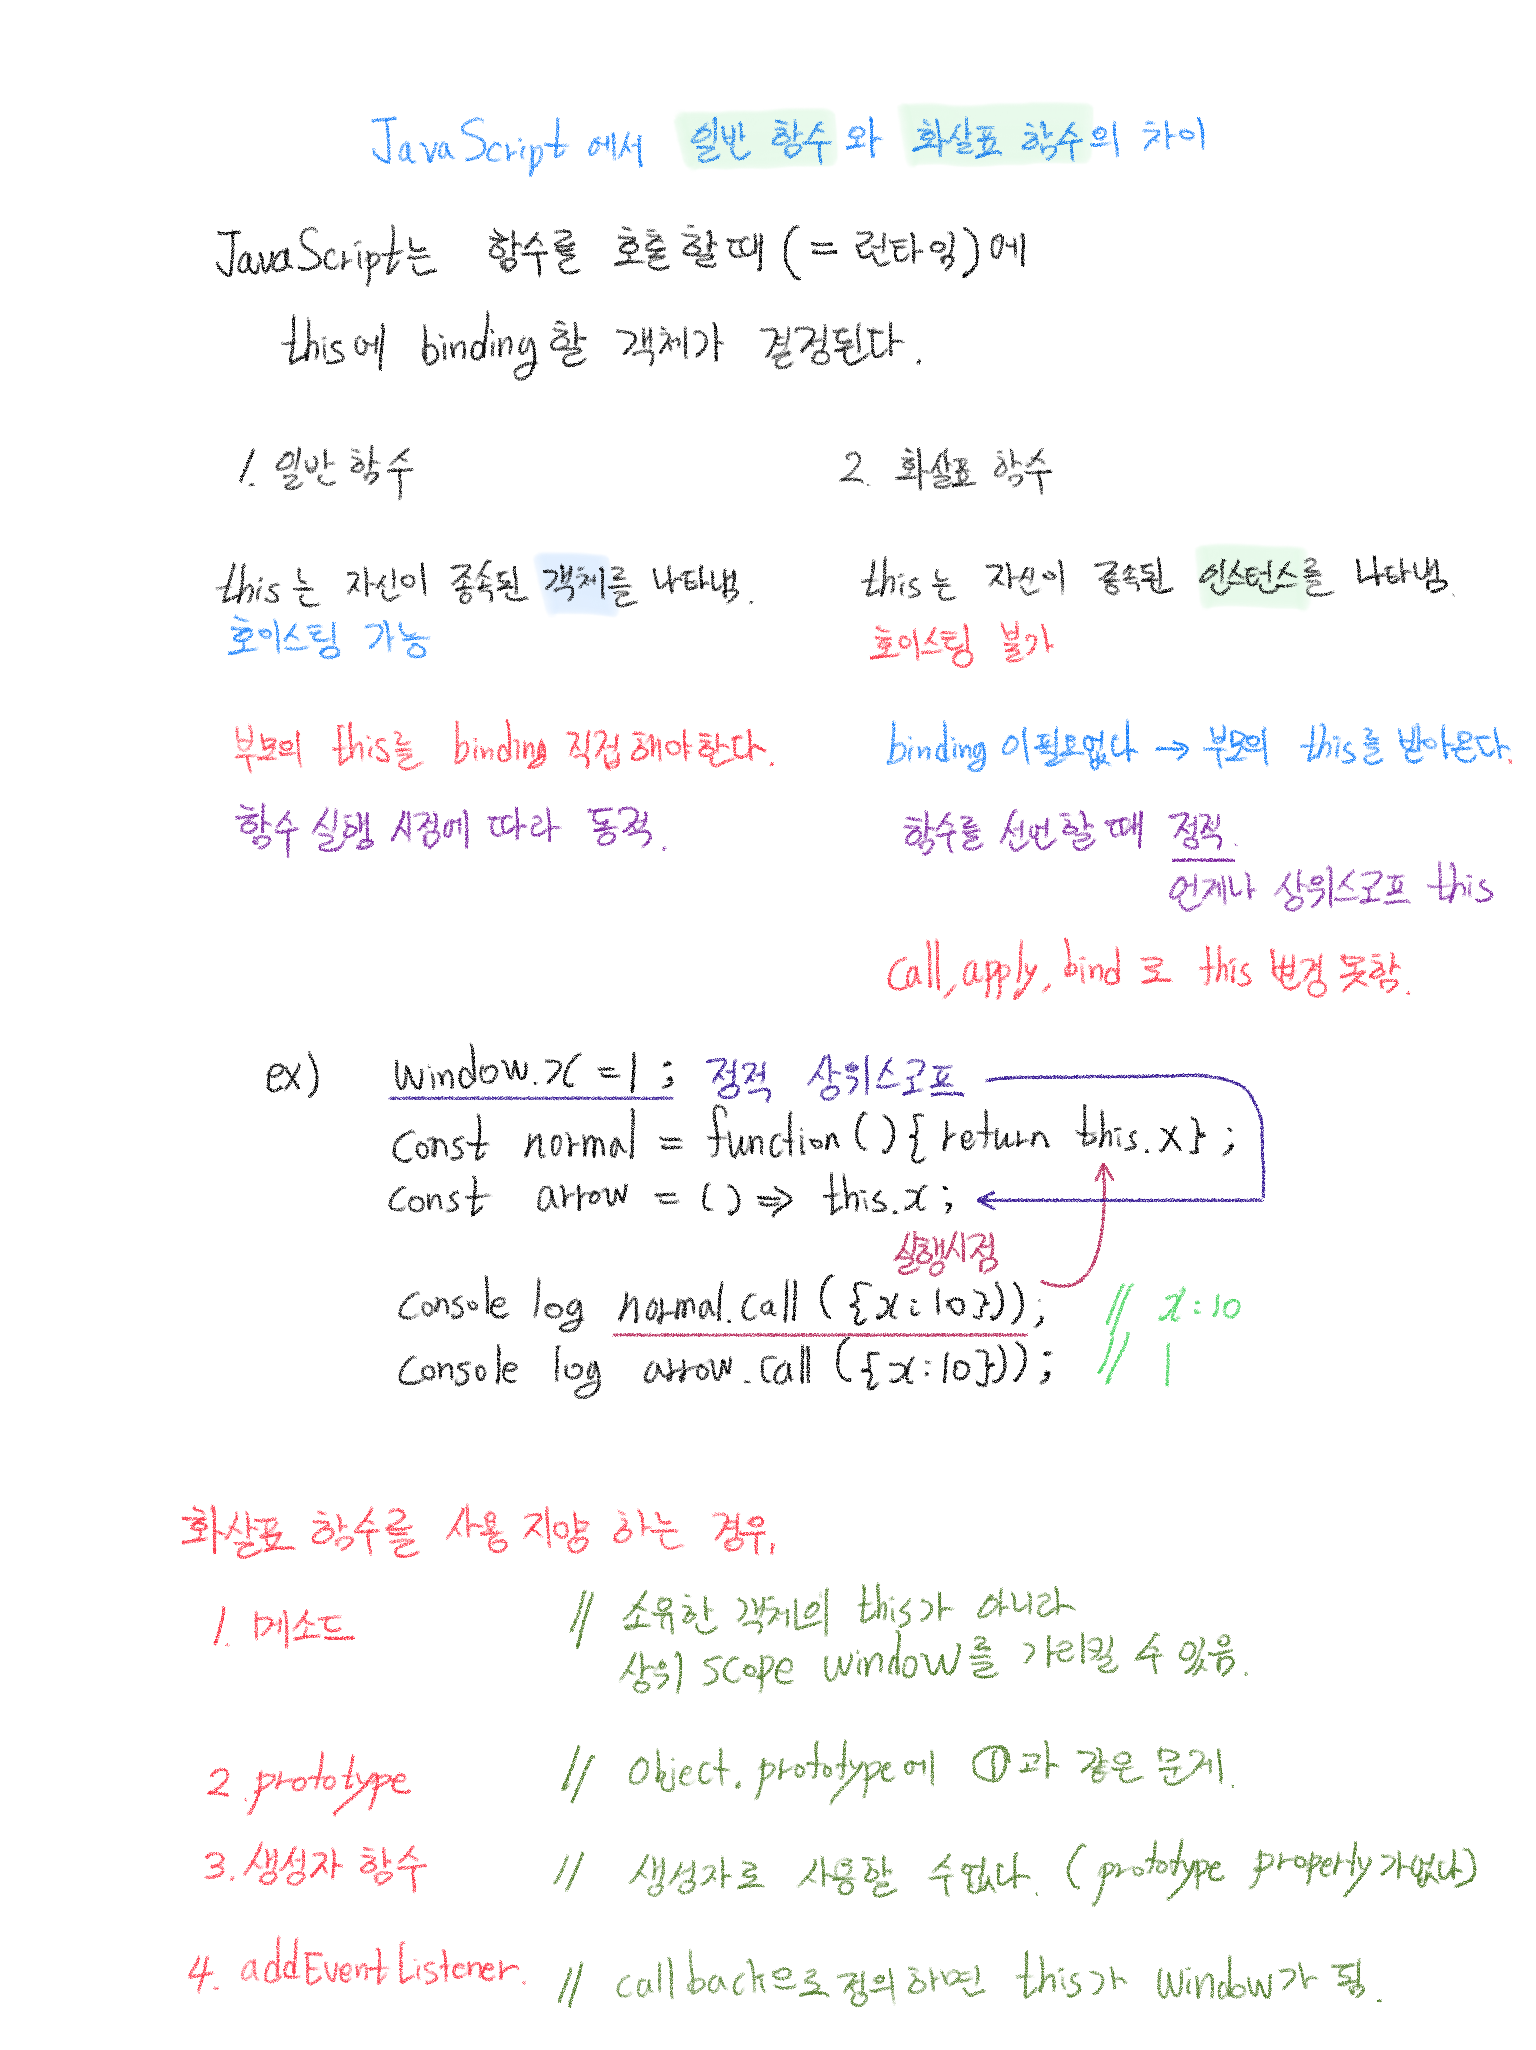 JavaScript 에서 일반 함수 와 화살표 함수의 차이
JavaScript는 함수를 호출 할 때 (= 런타임)에
this에 binding 할 객체가 결정된다.
1. 일반 함수
this는 자신이 종속된 객체를 나타냄.
호이스팅 가능
부모의 this를 binding 직접 해야 한다.
함수 실행 시점에 따라 동적.
2. 화살표 함수
this는 자신이 종속된 인스턴스를 나타냄.
호이스팅 불가
binding 이 필요없다 → 부모의 this를 받아온다.
함수를 선언할 때 정적.
언제나 상위스코프 this
call, apply, bind 로 this 변경 못함.
ex) window.x = 1 ; 정적 상위스코프
const normal = function () { return this.x } ;
const arrow = () => this.x ;
실행시점
console log normal.call ( {x : 10 } )) ; // x : 10
console log arrow.call ( {x : 10 } )) ; // 1
화살표 함수를 사용 지양 하는 경우,
1. 메소드 // 소유한 객체의 this가 아니라
상위 scope window를 가리킬 수 있음.
2. prototype // Object. prototype에 ①과 같은 문제.
3. 생성자 함수 // 생성자로 사용할 수 없다. ( prototype property 가 없다)
4. addEventListener. // callback으로 정의하면 this가 window가 됨.